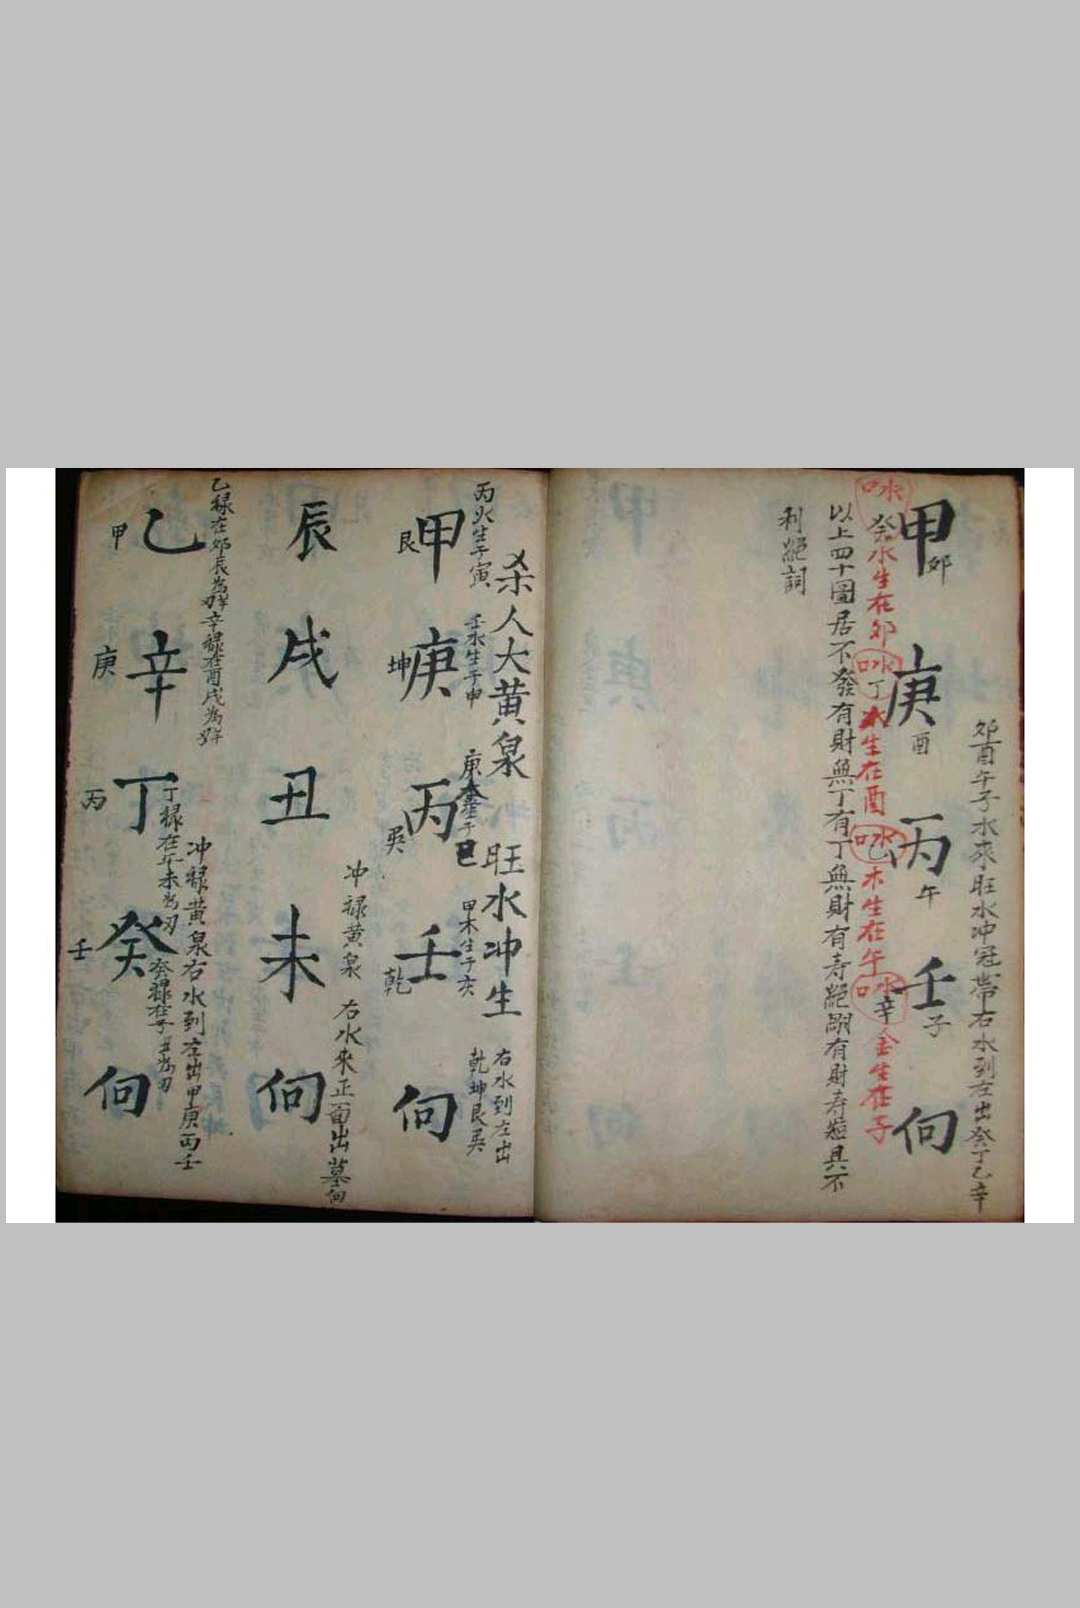 卯酉午子水來旺水冲冠帶右水到左出癸丁乙辛
甲卯庚酉丙午壬子向
口水癸水生在卯口水丁火生在酉口水乙木生在午口水辛金生在子
以上四十圖居不發有財無丁有丁無財有壽絕嗣有財壽丁具不
利絕詞
杀人大黄泉
旺水冲生
右水到左出
乾坤艮巽
丙火生于寅
壬水生于申
庚金生于巳
甲木生于亥
甲庚丙壬向
艮坤巽乾
冲禄黄泉
右水來正面出墓向
辰戌丑未向
乙禄在卯辰為刃辛禄在酉戌為
冲禄黄泉右水到左出甲庚丙壬
丁禄在午未為刃
癸禄在子丑為刃
乙辛丁癸向
甲庚丙壬